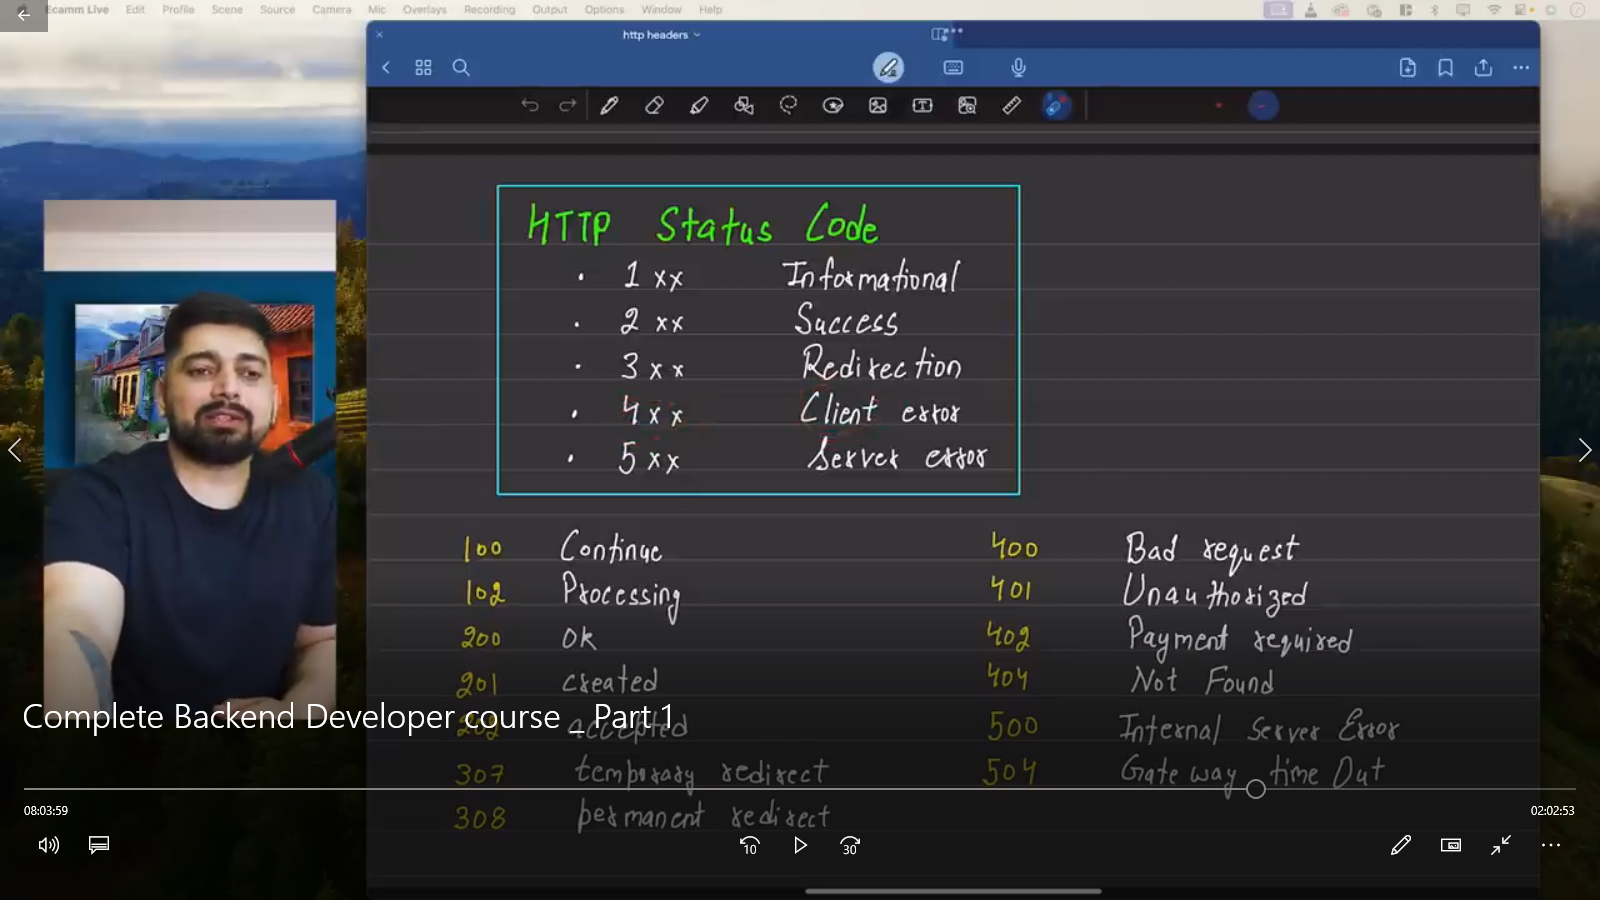 Ecamm Live Edit Profile Scene Source Camera Mic Overlays Recording Output Options Window Help
http headers
HTTP Status Code
• 1xx Informational
• 2xx Success
• 3xx Redirection
• 4xx Client error
• 5xx Server error
100 Continue
102 Processing
200 OK
201 created
202 accepted
307 temporary redirect
308 permanent redirect
400 Bad request
401 Unauthorized
402 Payment required
404 Not Found
500 Internal Server Error
504 Gateway time Out
Complete Backend Developer course _ Part 1
08:03:59
02:02:53
10
30